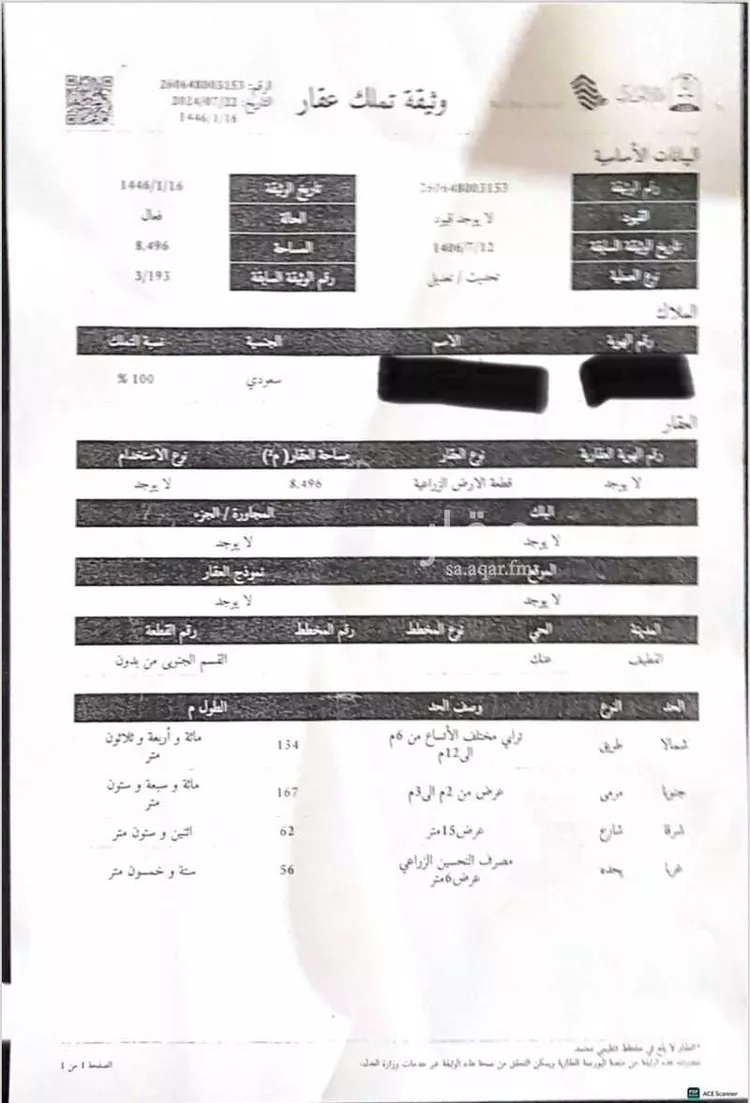 وثيقة تملك عقار
الرقم: 260648003153
التاريخ: 2024/07/22
1446/1/16
البيانات الأساسية
رقم الوثيقة 260648003153 تاريخ الوثيقة 1446/1/16
القيود لا يوجد قيود الحالة فعال
تاريخ الوثيقة السابقة 1406/7/12 المساحة 8,496
نوع العملية تحديث / تعديل رقم الوثيقة السابقة 3/193
الملاك
رقم الهوية الاسم الجنسية نسبة التملك
سعودي 100 %
العقار
رقم الهوية العقارية نوع العقار مساحة العقار( م²) نوع الاستخدام
لا يوجد قطعة الارض الزراعية 8,496 لا يوجد
البلك المجاورة / الجزء
لا يوجد لا يوجد
عقار
sa.aqar.fm
الموقع نموذج العقار
لا يوجد لا يوجد
المدينة الحي نوع المخطط رقم المخطط رقم القطعة
القطيف عنك القسم الجنوبى من بدون
الحد النوع وصف الحد الطول م
شمالا طريق ترابي مختلف الأتساع من 6م الى12م 134 مائة و أربعة و ثلاثون متر
جنوبا مرمى عرض من 2م الى3م 167 مائة و سبعة و ستون متر
شرقا شارع عرض15متر 62 اثنين و ستون متر
غربا يحده مصرف التحسين الزراعي عرض6متر 56 ستة و خمسون متر
*العقار لا يقع في مخطط تنظيمي معتمد
هذه الوثيقة من منصة البورصة العقارية ويمكن التحقق من صحة هذه الوثيقة عبر خدمات وزارة العدل.
الصفحة 1 من 1
ACE Scanner